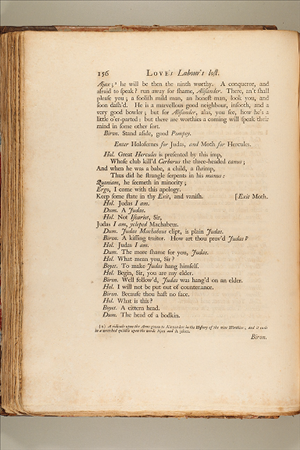 156 LOVE's Labour's lost.
Ajax; * he will be then the ninth worthy. A conqueror, and
afraid to speak? run away for shame, Alisander. There, an't shall
please you; a foolish mild man, an honest man, look you, and
soon dash'd. He is a marvellous good neighbour, insooth, and a
very good bowler; but for Alisander, alas, you see, how he's a
little o'er-parted: but there are worthies a coming will speak their
mind in some other sort.
Biron. Stand aside, good Pompey.
Enter Holofernes for Judas, and Moth for Hercules.
Hol. Great Hercules is presented by this imp,
Whose club kill'd Cerberus the three-headed canus;
And when he was a babe, a child, a shrimp,
Thus did he strangle serpents in his manus:
Quoniam, he seemeth in minority;
Ergo, I come with this apology.
Keep some state in thy Exit, and vanish. [Exit Moth.
Hol. Judas I am.
Dum. A Judas.
Hol. Not Iscariot, Sir,
Judas I am, ycleped Machabeus.
Dum. Judas Machabeus clipt, is plain Judas.
Biron. A kissing traitor. How art thou prov'd Judas?
Hol. Judas I am.
Dum. The more shame for you, Judas.
Hol. What mean you, Sir?
Boyet. To make Judas hang himself.
Hol. Begin, Sir, you are my elder.
Biron. Well follow'd, Judas was hang'd on an elder.
Hol. I will not be put out of countenance.
Biron. Because thou hast no face.
Hol. What is this?
Boyet. A cittern head.
Dum. The head of a bodkin.
Biron.